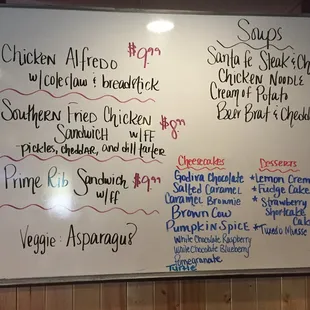 Chicken Alfredo $9.99
w/coleslaw & breadstick
Southern Fried Chicken $8.99
Sandwich w/FF
pickles, cheddar, and dill tartar
Prime Rib Sandwich $9.99
w/FF
Veggie: Asparagus
Soups
Santa Fe Steak &
Chicken Noodle
Cream of Potato
Beer Brat & Chedda
Cheesecakes
Godiva Chocolate
Salted Caramel
Caramel Brownie
Brown Cow
Pumpkin Spice
White Chocolate Raspberry
White Chocolate Blueberry
Pomegranate
Turtle
Desserts
*Lemon Crem
*Fudge Cake
*Strawberry
Shortcake
*Tuxedo Mousse